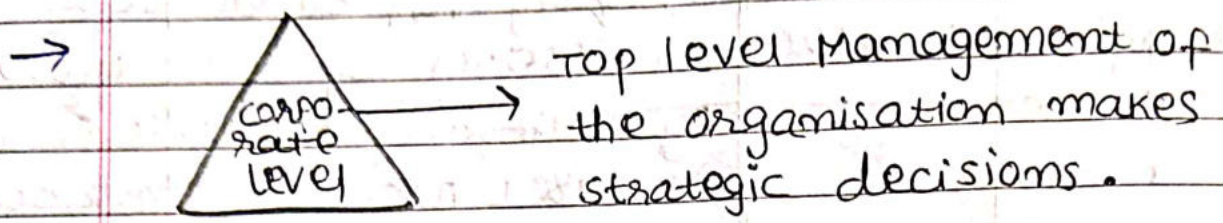 →
corpo-
rate
level
→ Top level Management of
the organisation makes
strategic decisions.